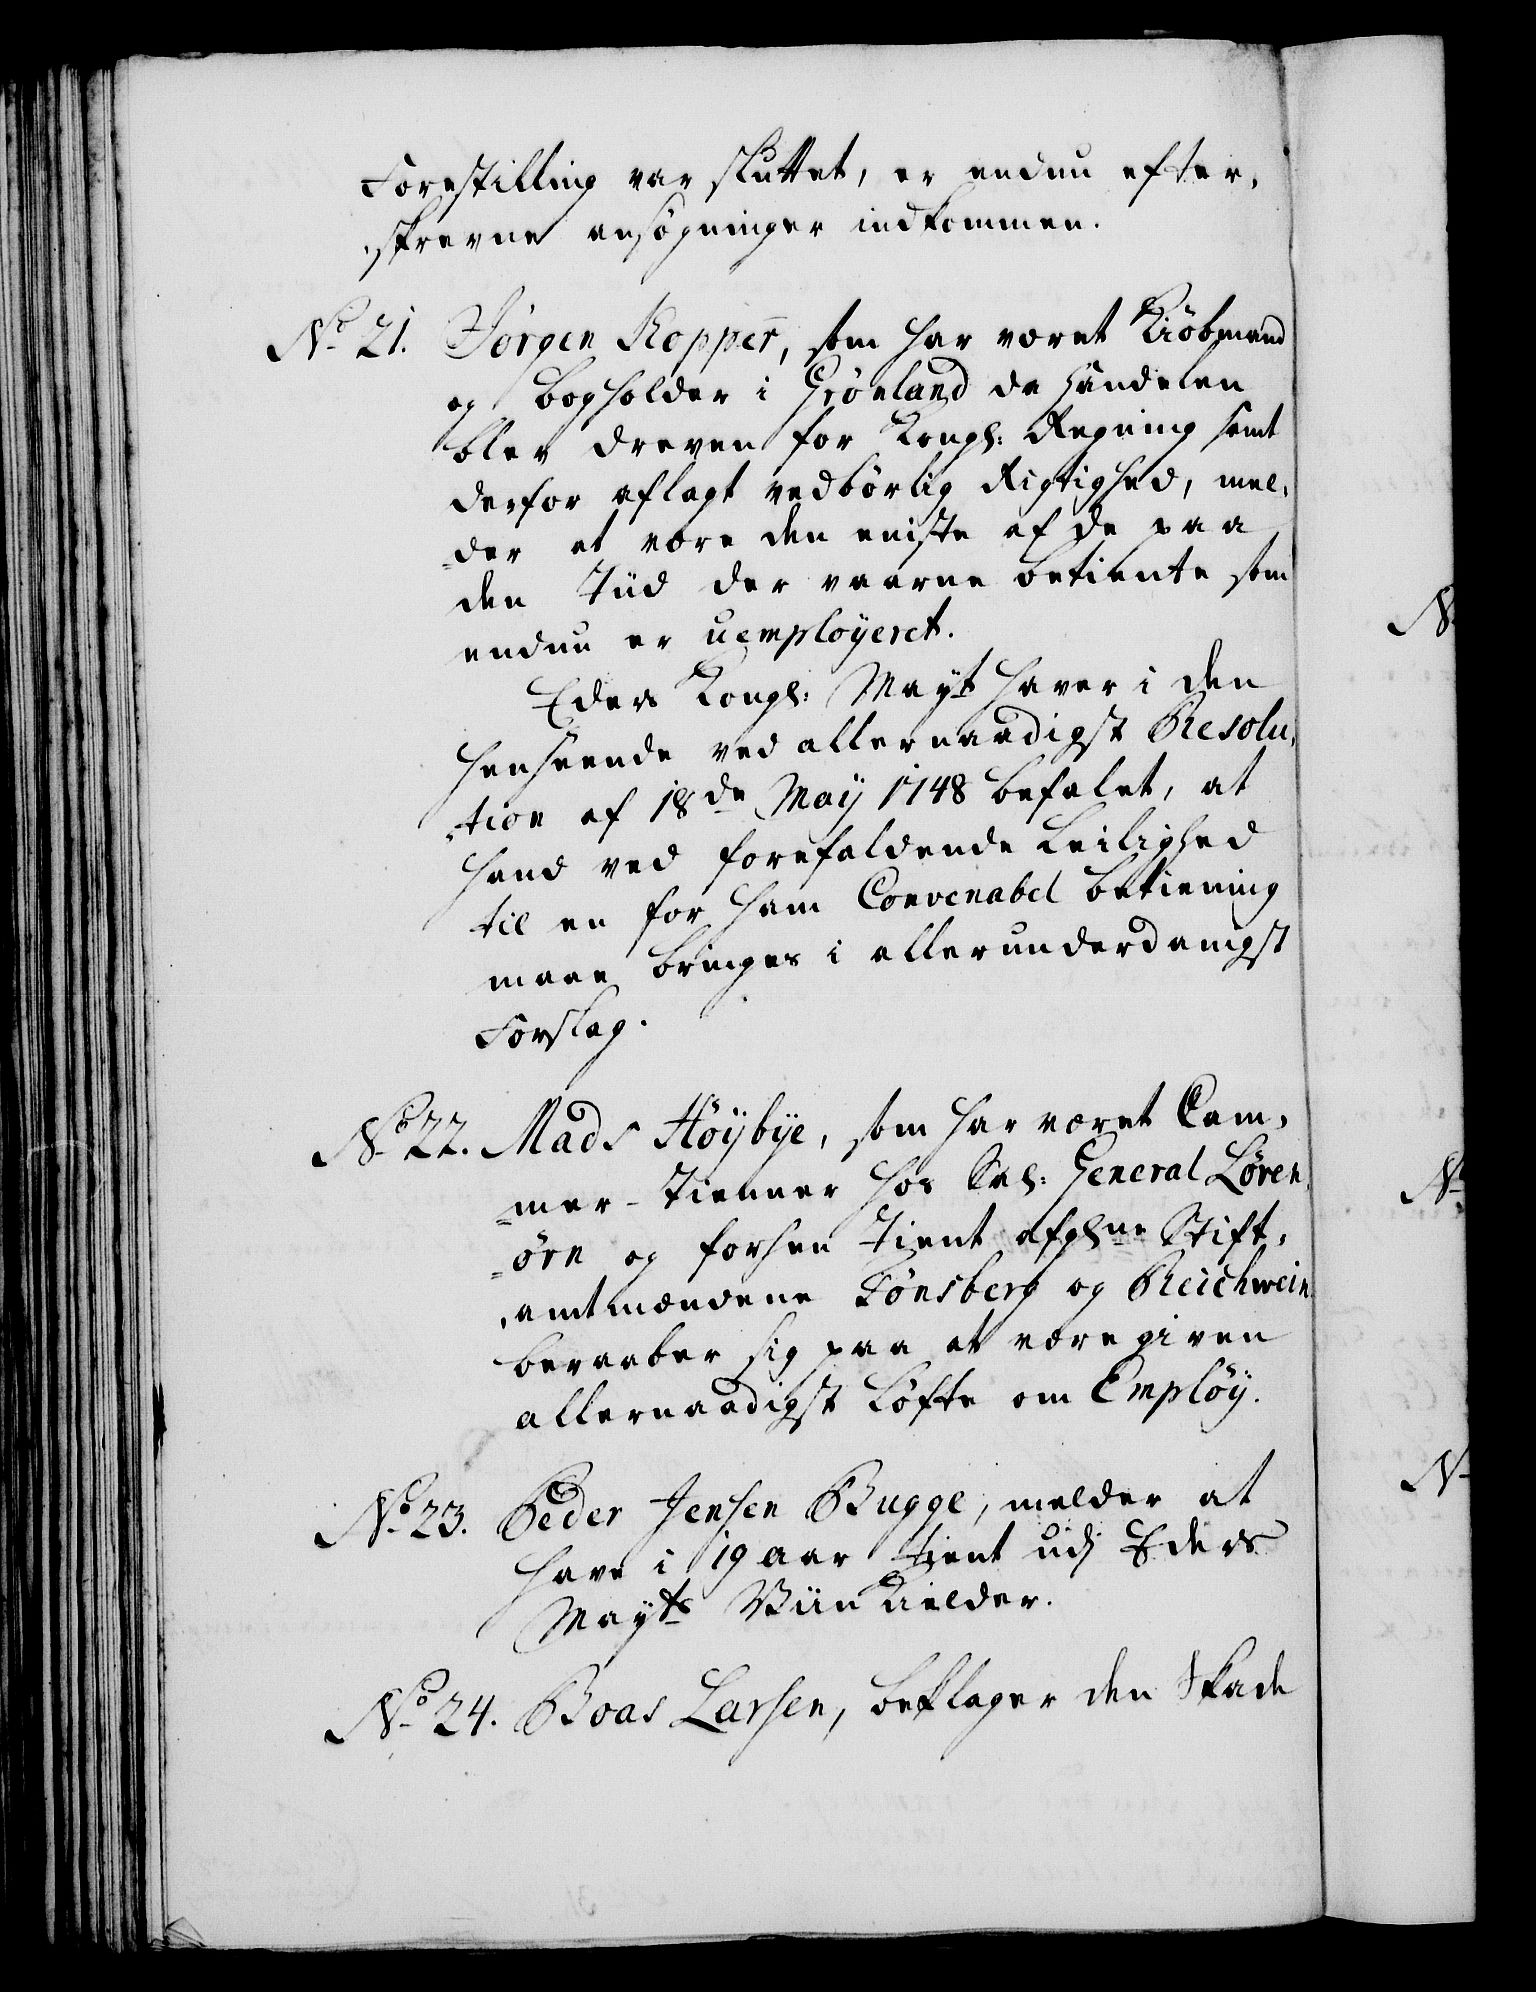 Forestilling var sluttet, er endnu efter,
,skrevne ansøgninger indkommen.
No 21. Jørgen Kopper, som har været Kiøbmand
og bogholder i Grønland da Handelen
blev dreven for Kongl: Regning samt
derfor aflagt vedbørlig Rigtighed, mel,
=der at være den eniste af de paa
den Tiid der vaarne betiente som
endnu er uemployeret.
Eders Kongl: Mayt haver i den
henseende ved allernaadigst Resolu,
,tion af 18de May 1748 befalet, at
hand ved forefaldende Leilighed
til en for ham Convenabel betiening
maae bringes i allerunderdanigst
Forslag.
No 22. Mads Høybye, som har været Cam,
=mer-Tienner hos Sal: General Løven,
=ørn og forhen tient afgl=ne Stift,
,amtmændene Tønsberg og Reichwein
beraaber sig paa at være given
allernaadigst Løfte om Employ.
No 23. Peder Jensen Bugge, melder at
have i 19 aar tient udj Eders
Mayts Viin Kielder.
No 24. Boas Larsen, beklager den Skade